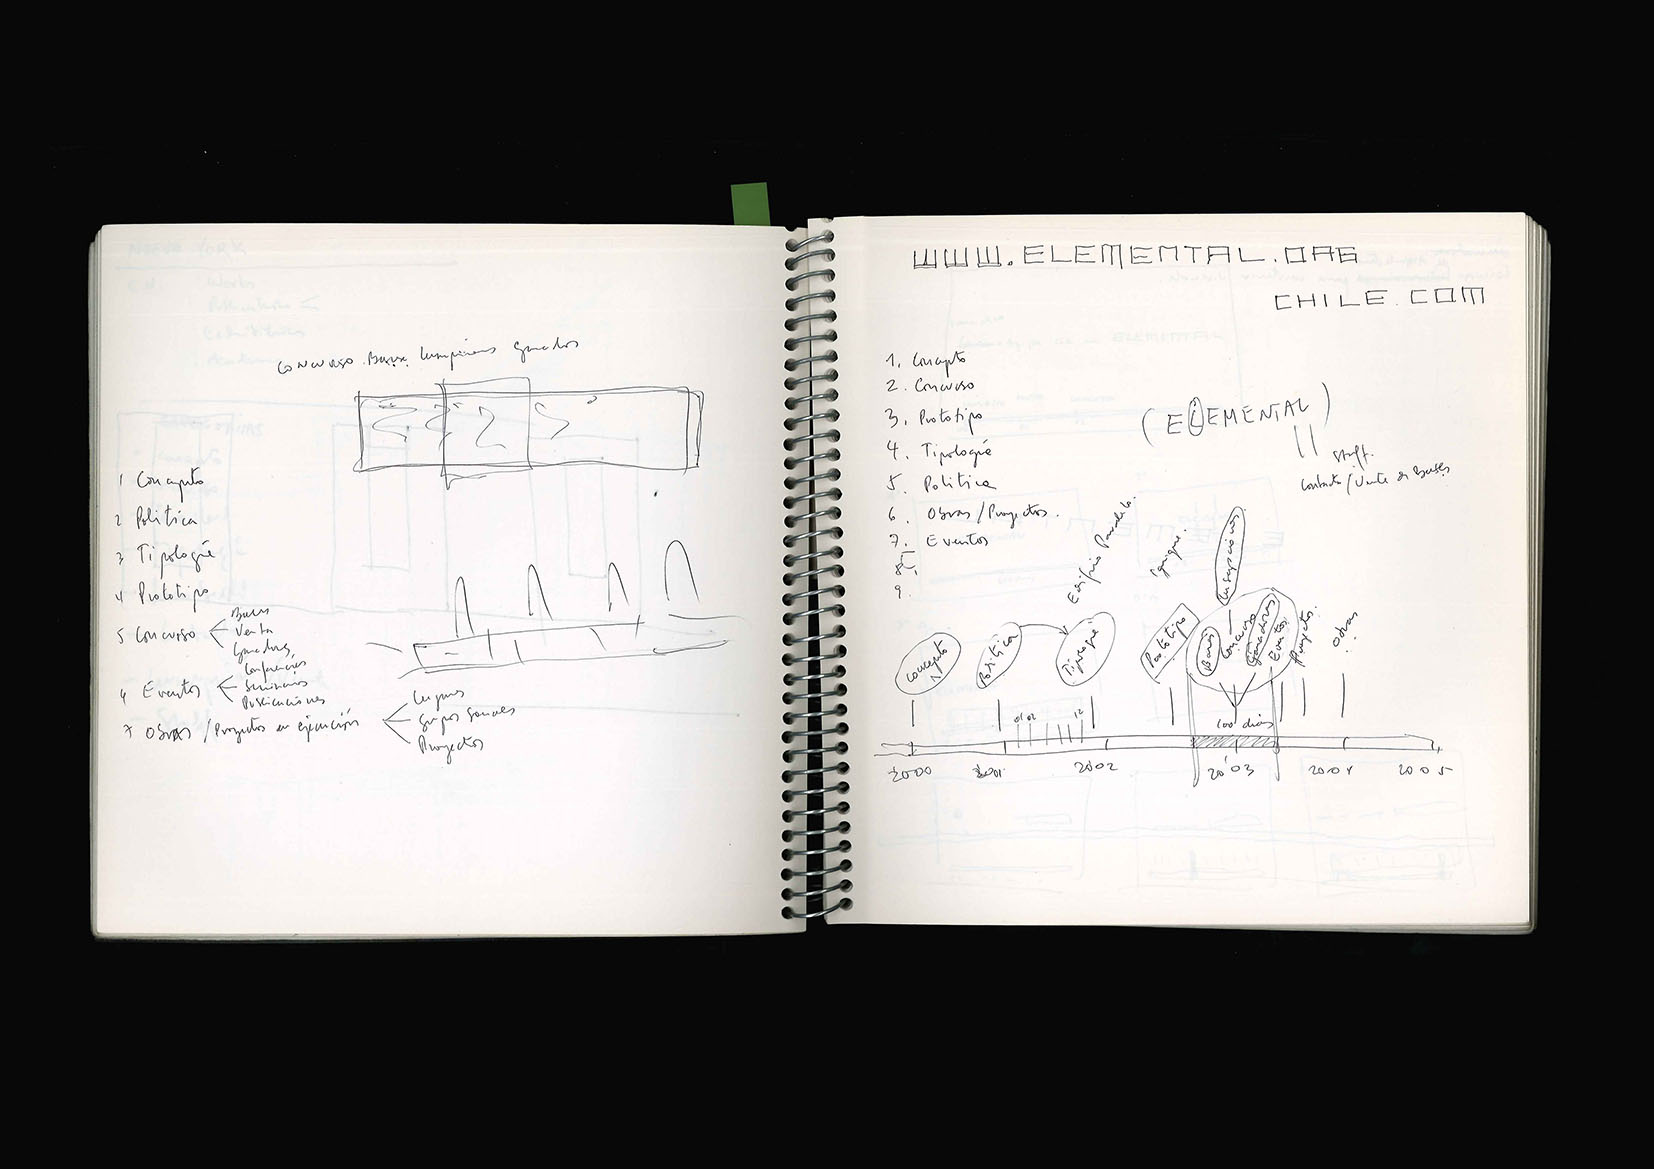 Concurso Bases Inscripciones Ganados
1 Concepto
2 Politica
3 Tipología
4 Prototipo
5 Concurso
Bases
Venta
Ganadores
6 Eventos
Conferencias
Seminarios
Publicaciones
7 Obras / Proyectos en ejecución
Lugares
Grupos Sociales
Proyectos
WWW.ELEMENTAL.ORG
CHILE.COM
1. Concepto
2. Concurso
3. Prototipo
4. Tipología
5. Politica
6. Obras / Proyectos.
7. Eventos
8.
9.
(ELEMENTAL)
Staff.
Contacto / Venta de Bases
Edificio Paralelo.
Iquique.
Inscripciones
Concepto
Politica
Tipología
Prototipo
Bases
Concurso
Ganadores
Eventos
Proyectos.
Obras
01 02
12
100 días
2000 2001 2002 2003 2004 2005